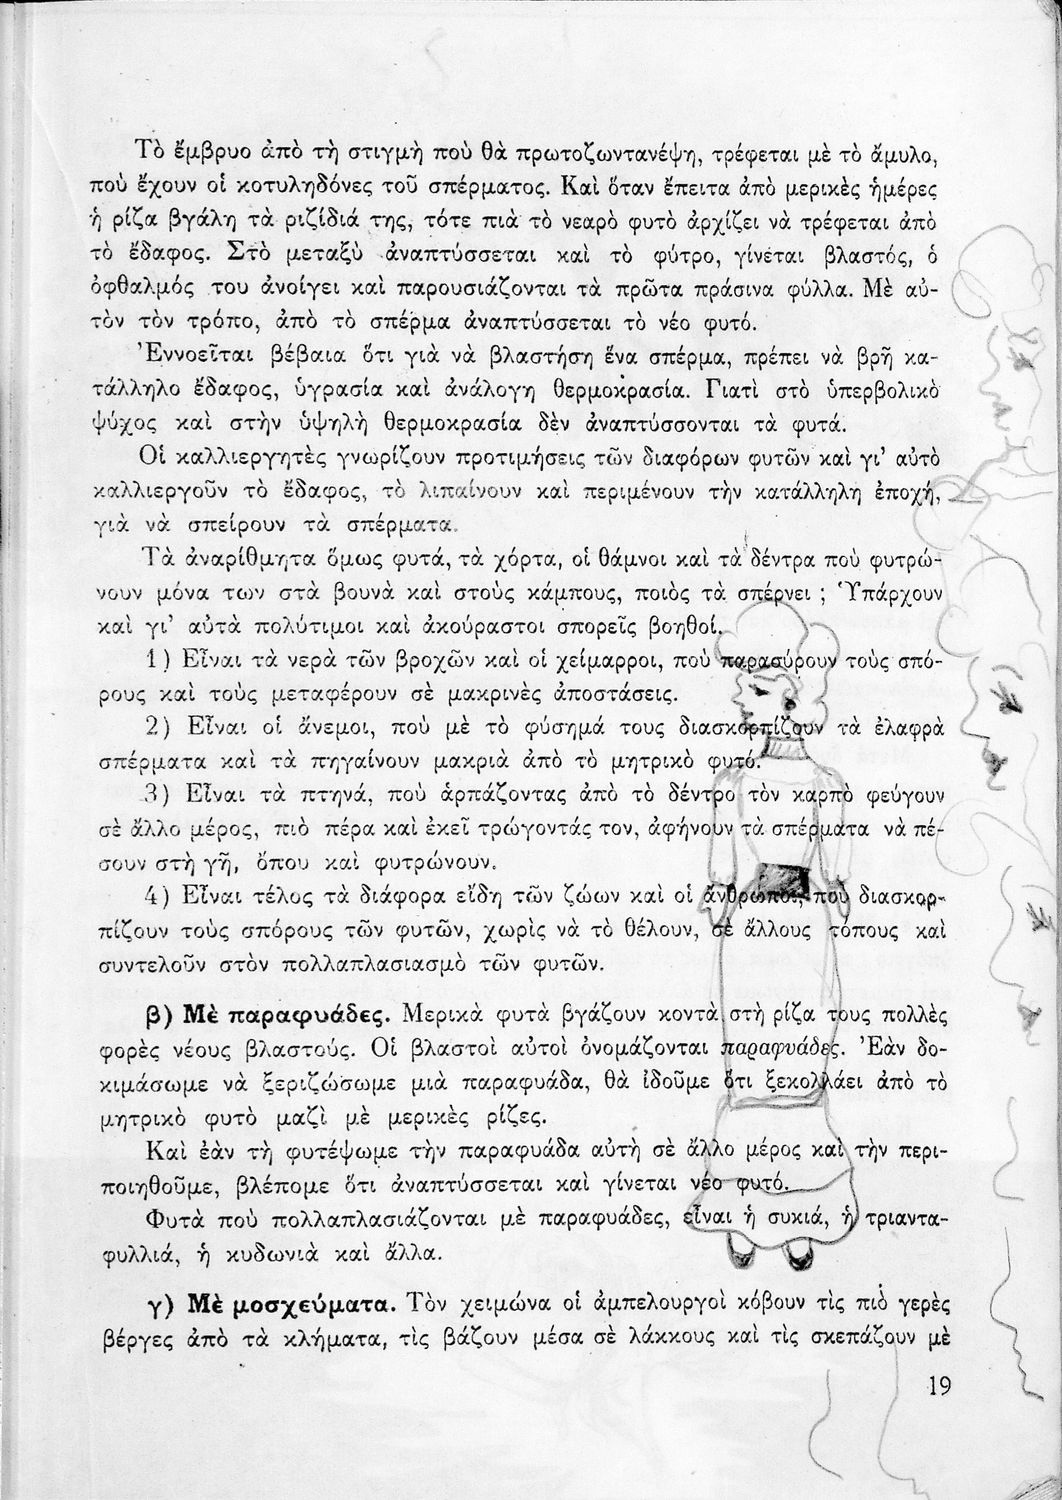 Τὸ ἔμβρυο ἀπὸ τὴ στιγμὴ ποὺ θὰ πρωτοζωντανέψη, τρέφεται μὲ τὸ ἄμυλο,
ποὺ ἔχουν οἱ κοτυληδόνες τοῦ σπέρματος. Καὶ ὅταν ἔπειτα ἀπὸ μερικὲς ἡμέρες
ἡ ρίζα βγάλη τὰ ριζίδιά της, τότε πιὰ τὸ νεαρὸ φυτὸ ἀρχίζει νὰ τρέφεται ἀπὸ
τὸ ἔδαφος. Στὸ μεταξὺ ἀναπτύσσεται καὶ τὸ φύτρο, γίνεται βλαστός, ὁ
ὀφθαλμός του ἀνοίγει καὶ παρουσιάζονται τὰ πρῶτα πράσινα φύλλα. Μὲ αὐ-
τὸν τὸν τρόπο, ἀπὸ τὸ σπέρμα ἀναπτύσσεται τὸ νέο φυτό.
Ἐννοεῖται βέβαια ὅτι γιὰ νὰ βλαστήση ἕνα σπέρμα, πρέπει νὰ βρῆ κα-
τάλληλο ἔδαφος, ὑγρασία καὶ ἀνάλογη θερμοκρασία. Γιατὶ στὸ ὑπερβολικὸ
ψύχος καὶ στὴν ὑψηλὴ θερμοκρασία δὲν ἀναπτύσσονται τὰ φυτά.
Οἱ καλλιεργητὲς γνωρίζουν προτιμήσεις τῶν διαφόρων φυτῶν καὶ γι' αὐτὸ
καλλιεργοῦν τὸ ἔδαφος, τὸ λιπαίνουν καὶ περιμένουν τὴν κατάλληλη ἐποχή,
γιὰ νὰ σπείρουν τὰ σπέρματα.
Τὰ ἀναρίθμητα ὅμως φυτά, τὰ χόρτα, οἱ θάμνοι καὶ τὰ δέντρα ποὺ φυτρώ-
νουν μόνα των στὰ βουνὰ καὶ στοὺς κάμπους, ποιὸς τὰ σπέρνει ; Ὑπάρχουν
καὶ γι' αὐτὰ πολύτιμοι καὶ ἀκούραστοι σπορεῖς βοηθοί.
1) Εἶναι τὰ νερὰ τῶν βροχῶν καὶ οἱ χείμαρροι, ποὺ παρασύρουν τοὺς σπό-
ρους καὶ τοὺς μεταφέρουν σὲ μακρινὲς ἀποστάσεις.
2) Εἶναι οἱ ἄνεμοι, ποὺ μὲ τὸ φύσημά τους διασκορπίζουν τὰ ἐλαφρὰ
σπέρματα καὶ τὰ πηγαίνουν μακριὰ ἀπὸ τὸ μητρικὸ φυτό.
3) Εἶναι τὰ πτηνά, ποὺ ἁρπάζοντας ἀπὸ τὸ δέντρο τὸν καρπὸ φεύγουν
σὲ ἄλλο μέρος, πιὸ πέρα καὶ ἐκεῖ τρώγοντάς τον, ἀφήνουν τὰ σπέρματα νὰ πέ-
σουν στὴ γῆ, ὅπου καὶ φυτρώνουν.
4) Εἶναι τέλος τὰ διάφορα εἴδη τῶν ζώων καὶ οἱ ἄνθρωποι, ποὺ διασκορ-
πίζουν τοὺς σπόρους τῶν φυτῶν, χωρὶς νὰ τὸ θέλουν, σὲ ἄλλους τόπους καὶ
συντελοῦν στὸν πολλαπλασιασμὸ τῶν φυτῶν.
β) Μὲ παραφυάδες. Μερικὰ φυτὰ βγάζουν κοντὰ στὴ ρίζα τους πολλὲς
φορὲς νέους βλαστούς. Οἱ βλαστοὶ αὐτοὶ ὀνομάζονται παραφυάδες. Ἐὰν δο-
κιμάσωμε νὰ ξεριζώσωμε μιὰ παραφυάδα, θὰ ἰδοῦμε ὅτι ξεκολλάει ἀπὸ τὸ
μητρικὸ φυτὸ μαζὶ μὲ μερικὲς ρίζες.
Καὶ ἐὰν τὴ φυτέψωμε τὴν παραφυάδα αὐτὴ σὲ ἄλλο μέρος καὶ τὴν περι-
ποιηθοῦμε, βλέπομε ὅτι ἀναπτύσσεται καὶ γίνεται νέο φυτό.
Φυτὰ ποὺ πολλαπλασιάζονται μὲ παραφυάδες, εἶναι ἡ συκιά, ἡ τριαντα-
φυλλιά, ἡ κυδωνιὰ καὶ ἄλλα.
γ) Μὲ μοσχεύματα. Τὸν χειμώνα οἱ ἀμπελουργοὶ κόβουν τὶς πιὸ γερὲς
βέργες ἀπὸ τὰ κλήματα, τὶς βάζουν μέσα σὲ λάκκους καὶ τὶς σκεπάζουν μὲ
19